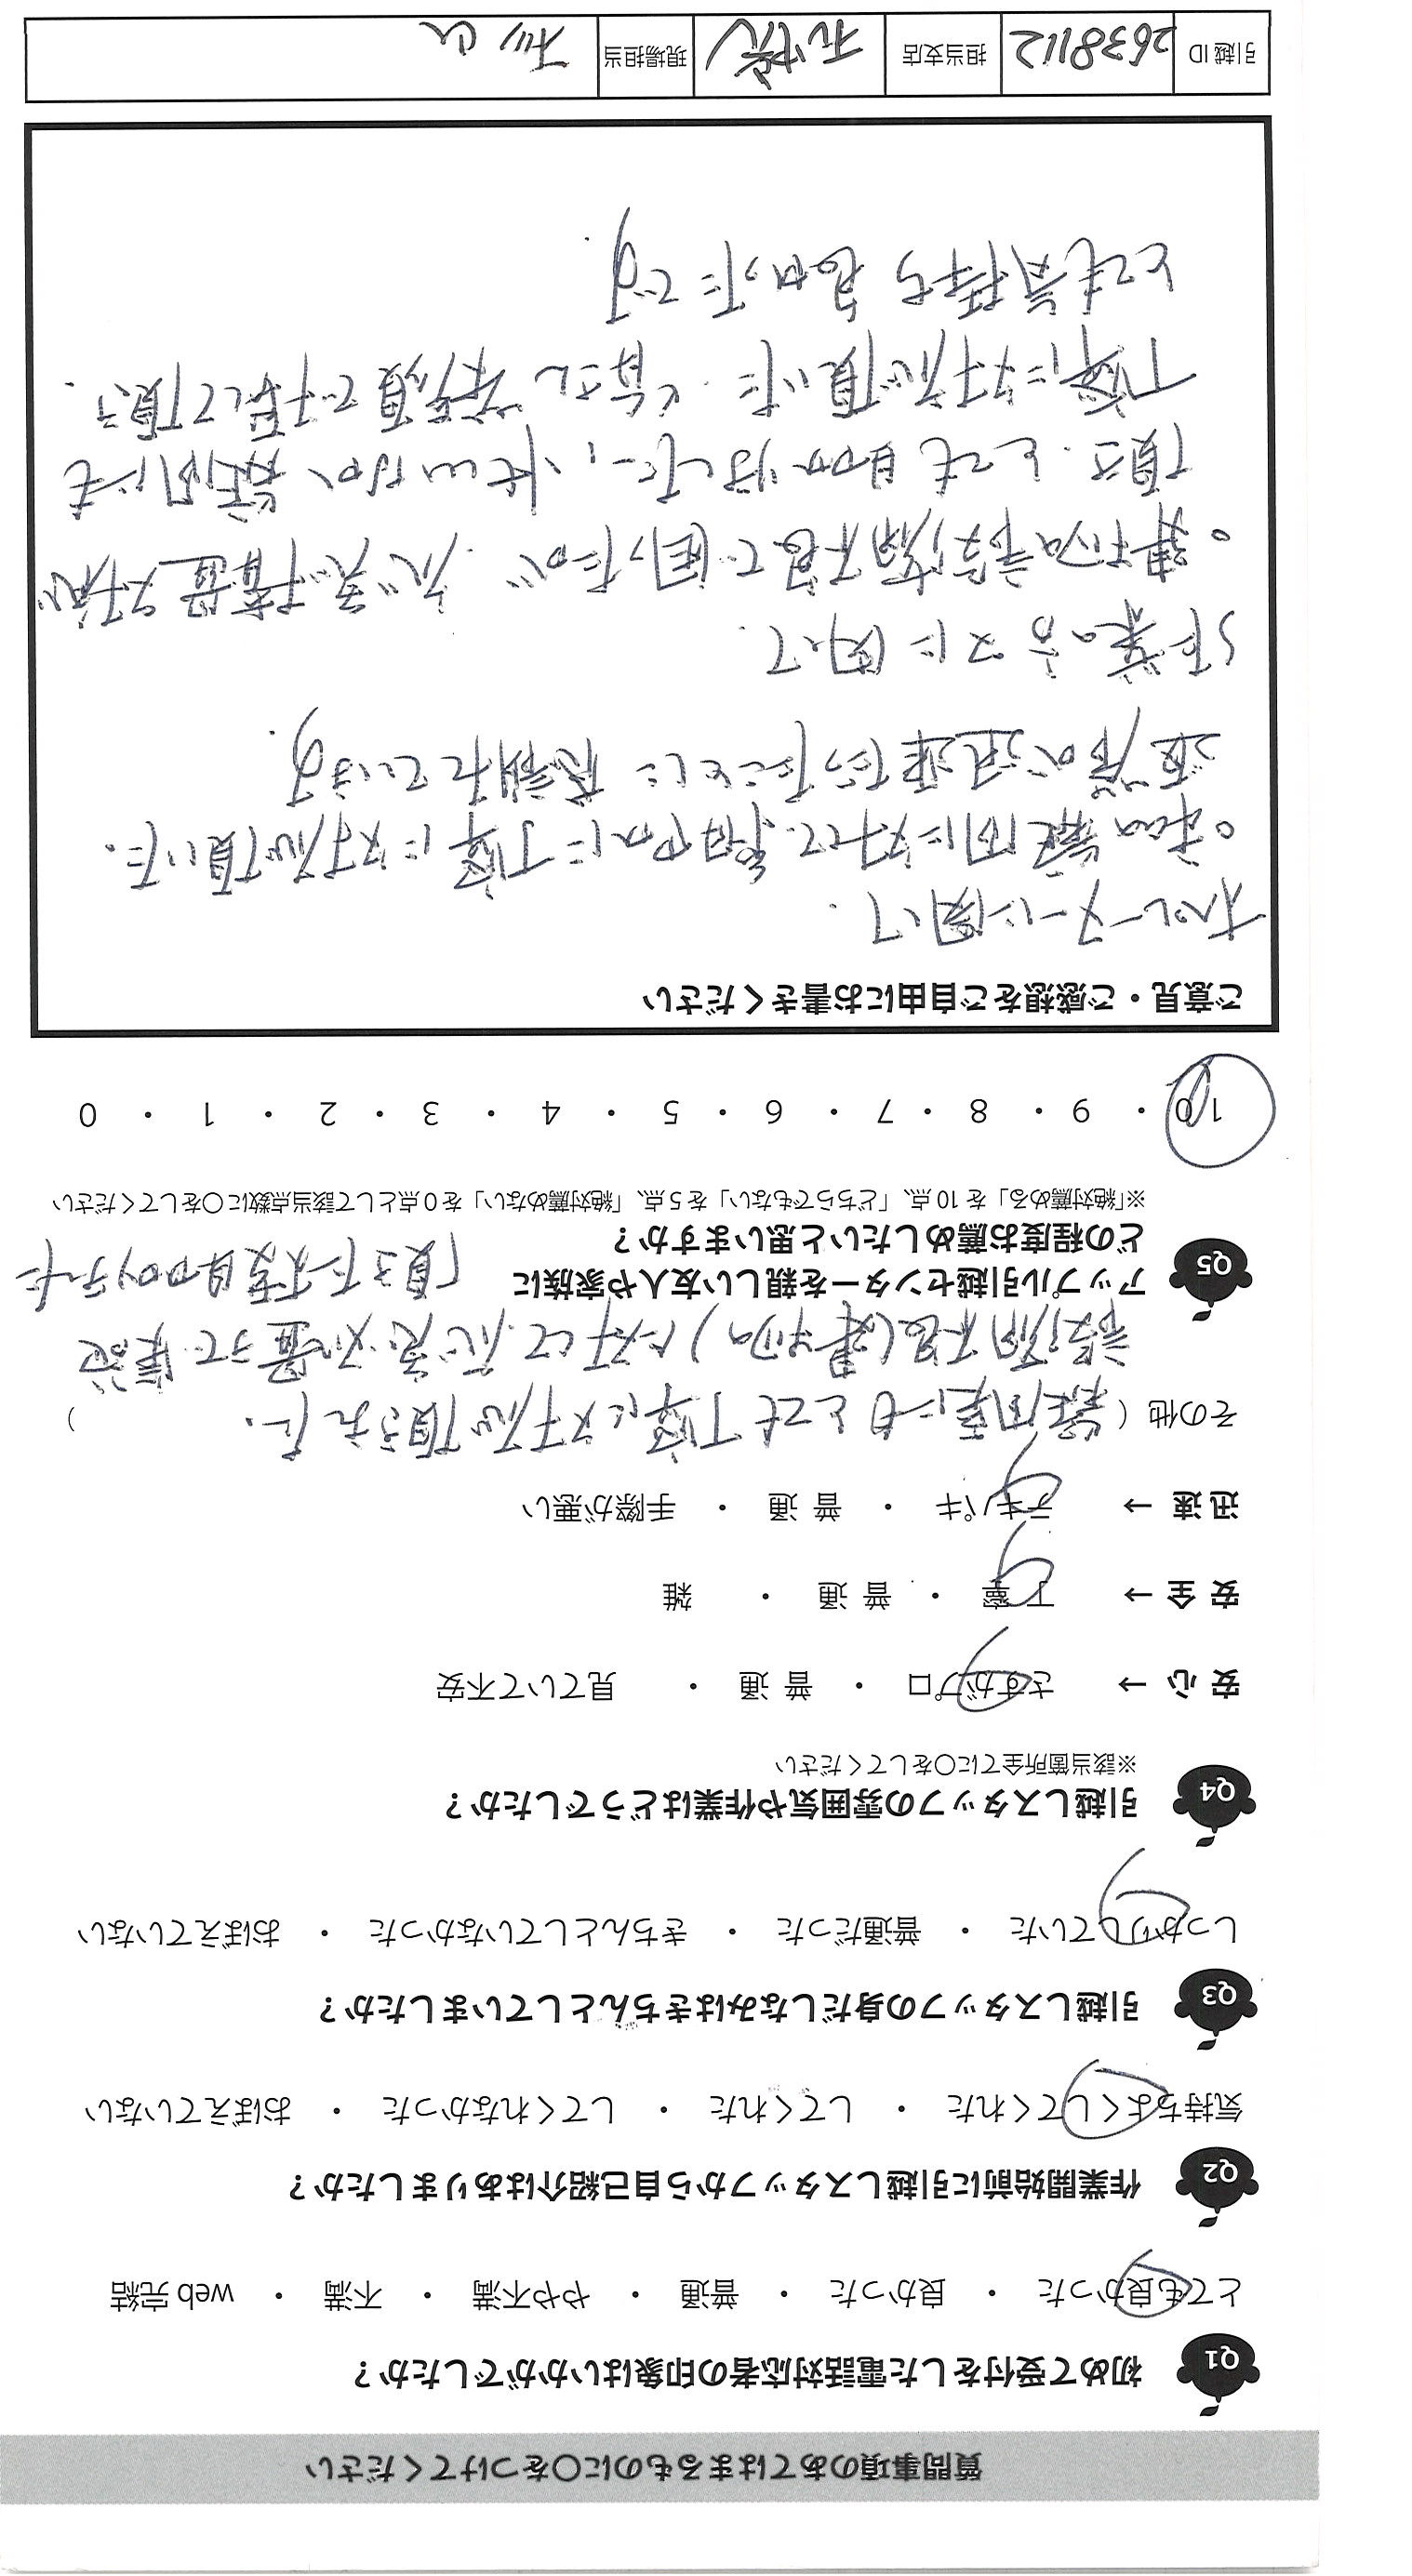 質問事項のあてはまるものに〇をつけてください
Q1 初めて受付をした電話対応者の印象はいかがでしたか？
とても良かった ・ 良かった ・ 普通 ・ やや不満 ・ 不満 ・ web 完結
Q2 作業開始前に引越しスタッフから自己紹介はありましたか？
気持ちよくしてくれた ・ してくれた ・ してくれなかった ・ おぼえていない
Q3 引越しスタッフの身だしなみはきちんとしていましたか？
しっかりしていた ・ 普通だった ・ きちんとしていなかった ・ おぼえていない
Q4 引越しスタッフの雰囲気や作業はどうでしたか？
※該当箇所全てに〇をしてください
安心 → さすがプロ ・ 普通 ・ 見ていて不安
安全 → 丁寧 ・ 普通 ・ 雑
迅速 → テキパキ ・ 普通 ・ 手際が悪い
その他（ 疑問点にもとても丁寧に対応頂きました。 ）
説明不足(建物)に対して
頂き大変助かりました
Q5 アップル引越センターを親しい友人や家族に
どの程度お薦めしたいと思いますか？
※「絶対薦める」を 10 点、「どちらでもない」を 5 点、「絶対薦めない」を 0 点として該当点数に〇をしてください
10 ・ 9 ・ 8 ・ 7 ・ 6 ・ 5 ・ 4 ・ 3 ・ 2 ・ 1 ・ 0
ご意見・ご感想をご自由にお書きください
オペレーターに関して.
○私の疑問に対して、 丁寧に対応頂いた.
返答が迅速だったことに感謝しています.
作業の方々に関して.
○建物の説明不足で困ったが、
頂き.とても助かりました、 疑問にも
丁寧に対応頂いた. 皆さん笑顔で 頂き.
とても気持ち良かったです.
引越 ID 2638112 担当支店 現場担当